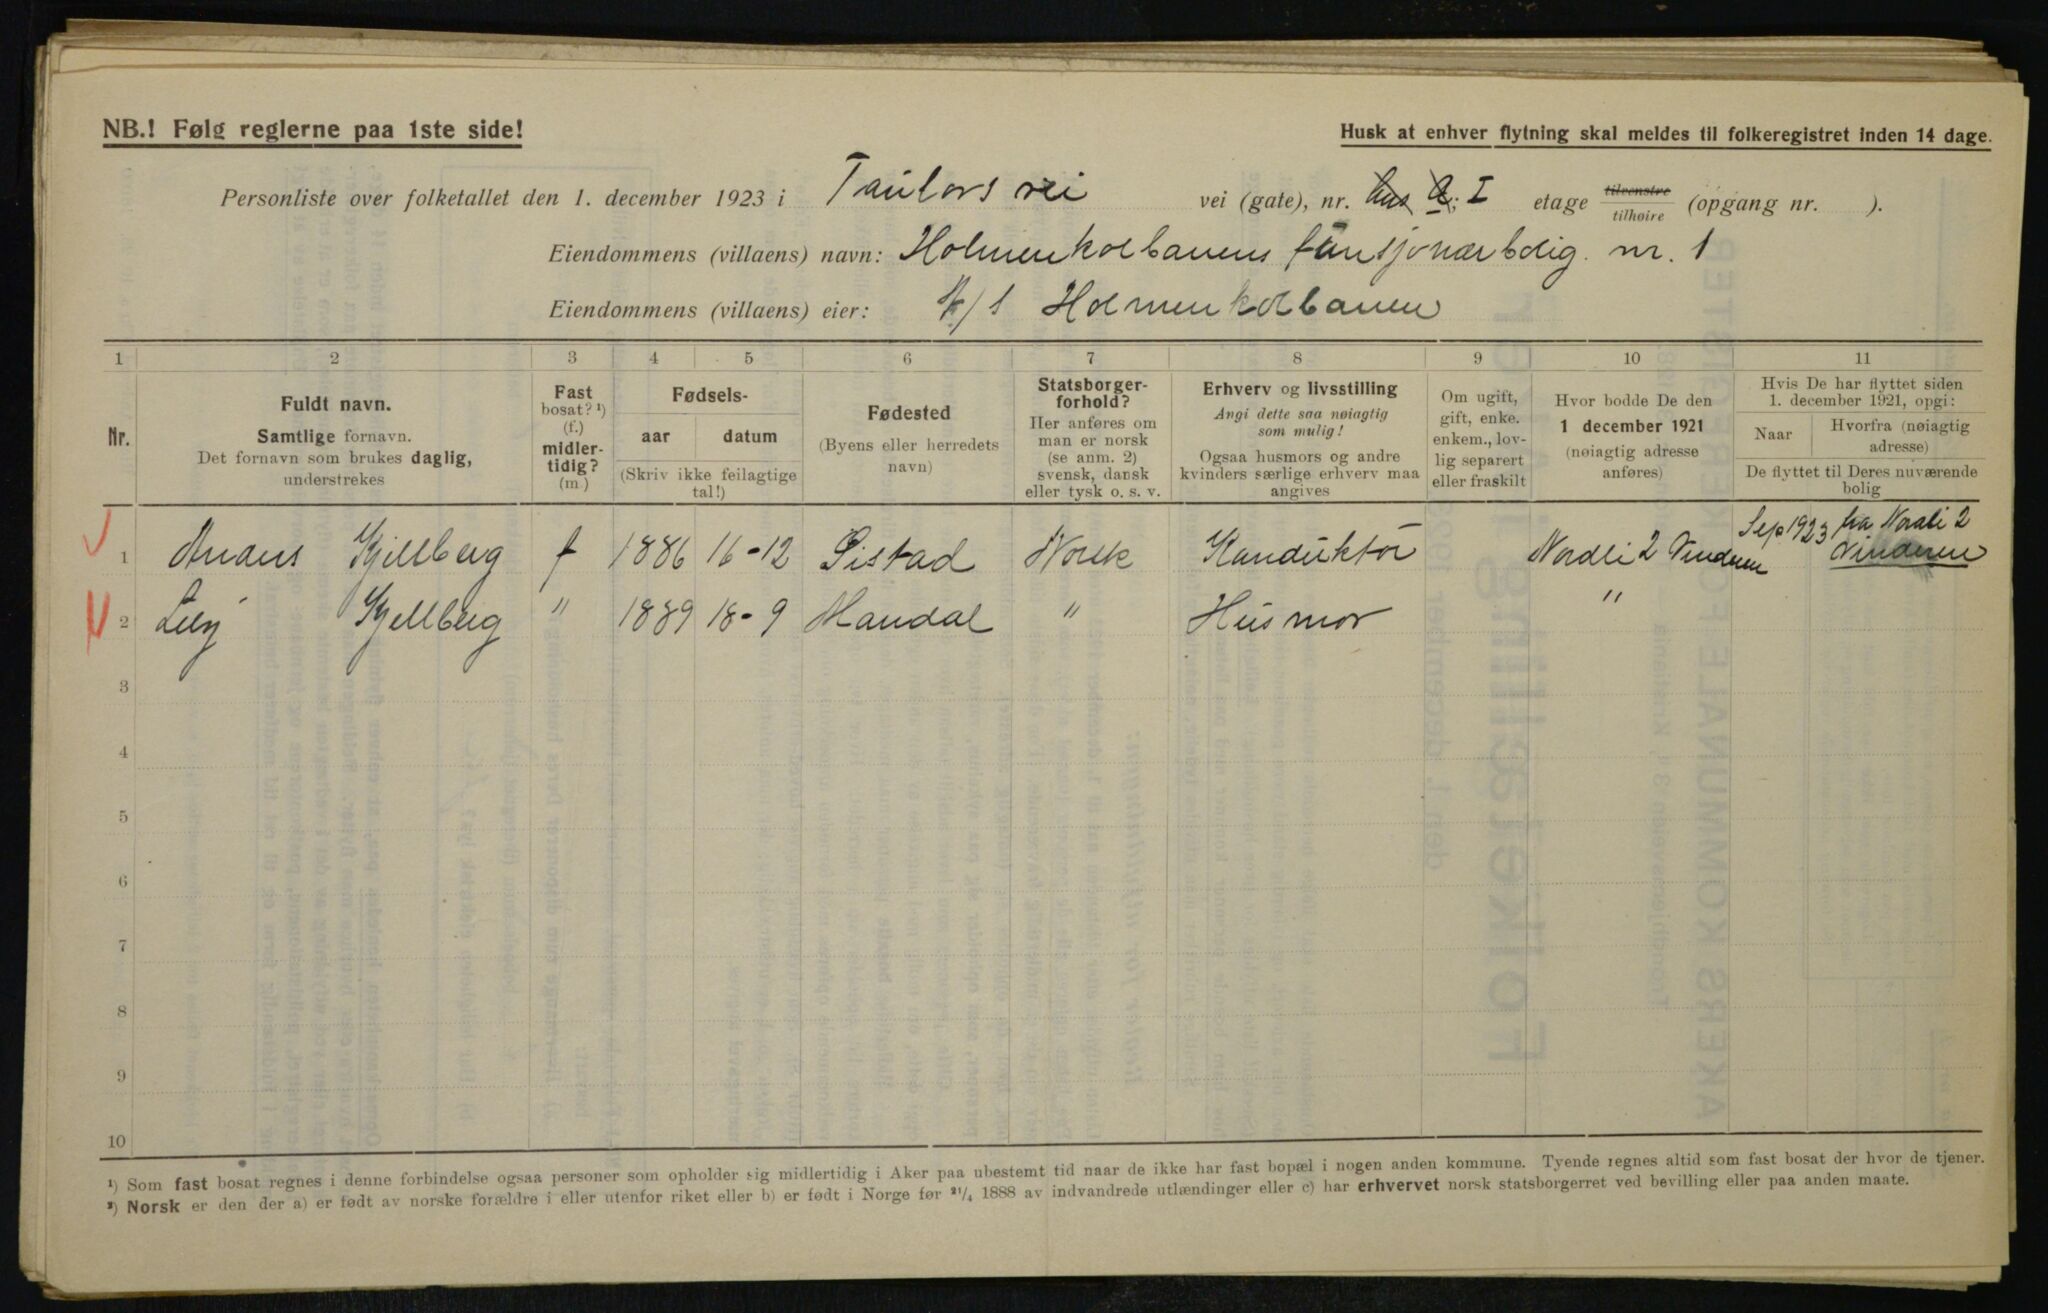 NB.! Følg reglerne paa 1ste side!
Husk at enhver flytning skal meldes til folkeregistret inden 14 dage.
Personliste over folketallet den 1. december 1923 i Taulors vei vei (gate), nr. hus a; I etage tilvenstre/tilhøire (opgang nr. ).
Eiendommens (villaens) navn: Holmenkolbanens funsjonærbolig. nr. 1
Eiendommens (villaens) eier: A/S Holmenkolbanen
1 2 3 4 5 6 7 8 9 10 11
Nr.
Fuldt navn.
Samtlige fornavn.
Det fornavn som brukes daglig,
understrekes
Fast
bosat? ¹)
(f.)
midler-
tidig?
(m.)
Fødsels-
aar datum
(Skriv ikke feilagtige
tal!)
Fødested
(Byens eller herredets
navn)
Statsborger-
forhold?
Her anføres om
man er norsk
(se anm. 2)
svensk, dansk
eller tysk o. s. v.
Erhverv og livsstilling
Angi dette saa nøiagtig
som mulig!
Ogsaa husmors og andre
kvinders særlige erhverv maa
angives
Om ugift,
gift, enke.
enkem., lov-
lig separert
eller fraskilt
Hvor bodde De den
1 december 1921
(nøiagtig adresse
anføres)
Hvis De har flyttet siden
1. december 1921, opgi:
Naar
Hvorfra (nøiagtig
adresse)
De flyttet til Deres nuværende
bolig
1 Anders Kjellberg f 1886 16-12 Sistad Norsk Konduktør Nordli 2 Vinderen Sep 1923 fra Nordli 2 Vinderen
2 Lily Kjellberg " 1889 18-9 Mandal " Husmor "
3
4
5
6
7
8
9
10
¹) Som fast bosat regnes i denne forbindelse ogsaa personer som opholder sig midlertidig i Aker paa ubestemt tid naar de ikke har fast bopæl i nogen anden kommune. Tyende regnes altid som fast bosat der hvor de tjener.
²) Norsk er den der a) er født av norske forældre i eller utenfor riket eller b) er født i Norge før ²¹/₄ 1888 av indvandrede utlændinger eller c) har erhvervet norsk statsborgerret ved bevilling eller paa anden maate.